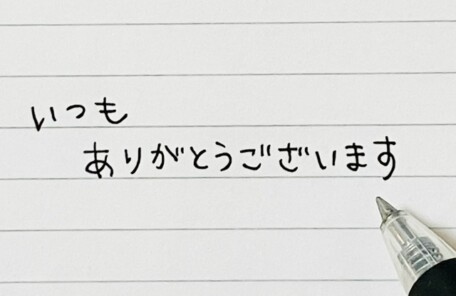 いつも
ありがとうございます